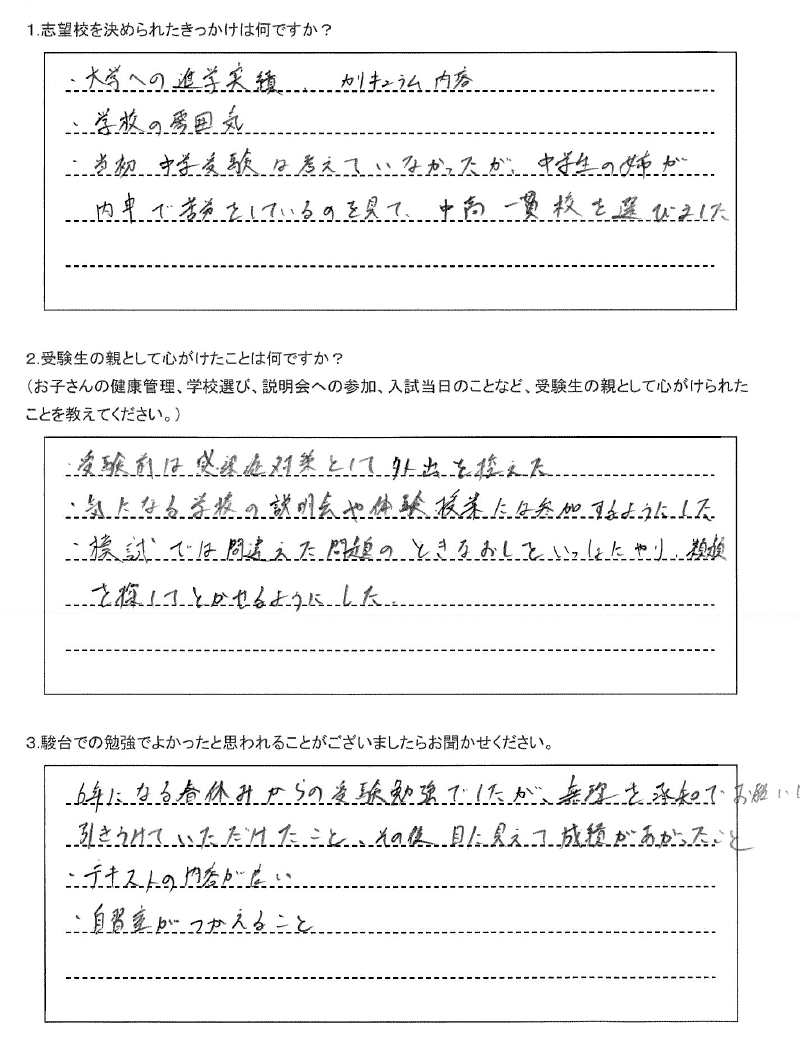 1.志望校を決められたきっかけは何ですか？
・大学への進学実績、カリキュラム内容
・学校の雰囲気
・当初 中学受験は考えていなかったが、中学生の姉が
内申で苦労をしているのを見て、中高一貫校を選びました
2.受験生の親として心がけたことは何ですか？
（お子さんの健康管理、学校選び、説明会への参加、入試当日のことなど、受験生の親として心がけられた
ことを教えてください。）
・受験前は感染症対策として外出を控えた
・気になる学校の説明会や体験授業には参加するようにした
・模試では間違えた問題のときなおしをいっしょにやり、類題
を探してとかせるようにした。
3.駿台での勉強でよかったと思われることがございましたらお聞かせください。
6年になる春休みからの受験勉強でしたが、無理を承知でお願いし
引きうけていただけたこと、その後 目に見えて成績があがったこと
・テキストの内容が良い
・自習室がつかえること